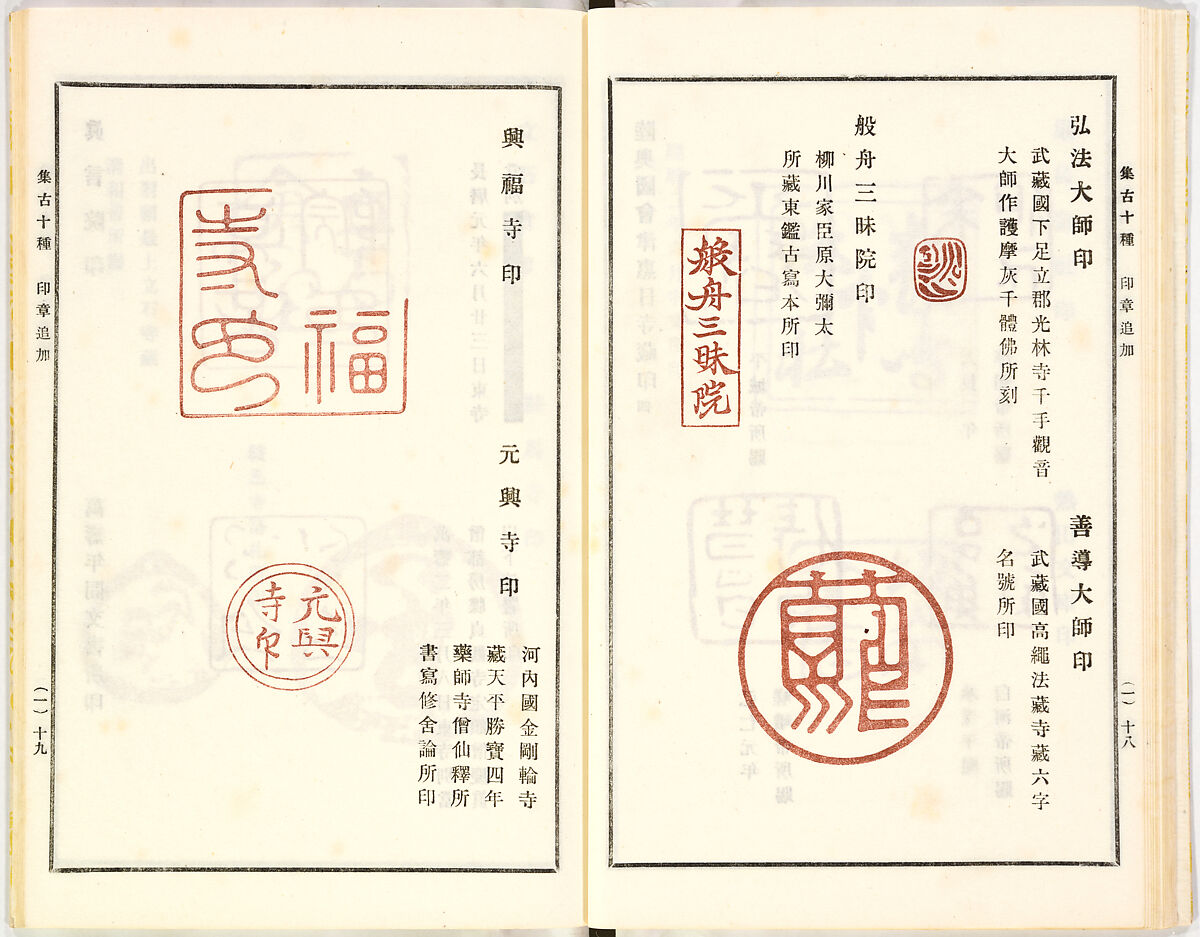 集古十種　印章追加
(一)十八
弘法大師印
武藏國下足立郡光林寺千手觀音
大師作護摩灰千體佛所刻
善導大師印
武藏國高繩法藏寺藏六字
名號所印
般舟三昧院印
柳川家臣原大彌太
所藏東鑑古寫本所印
般舟三昧院
興福寺印
福
寺印
元興寺印
河内國金剛輪寺
藏天平勝寶四年
藥師寺僧仙釋所
書寫修舍論所印
元興
寺印
集古十種　印章追加
(一)十九